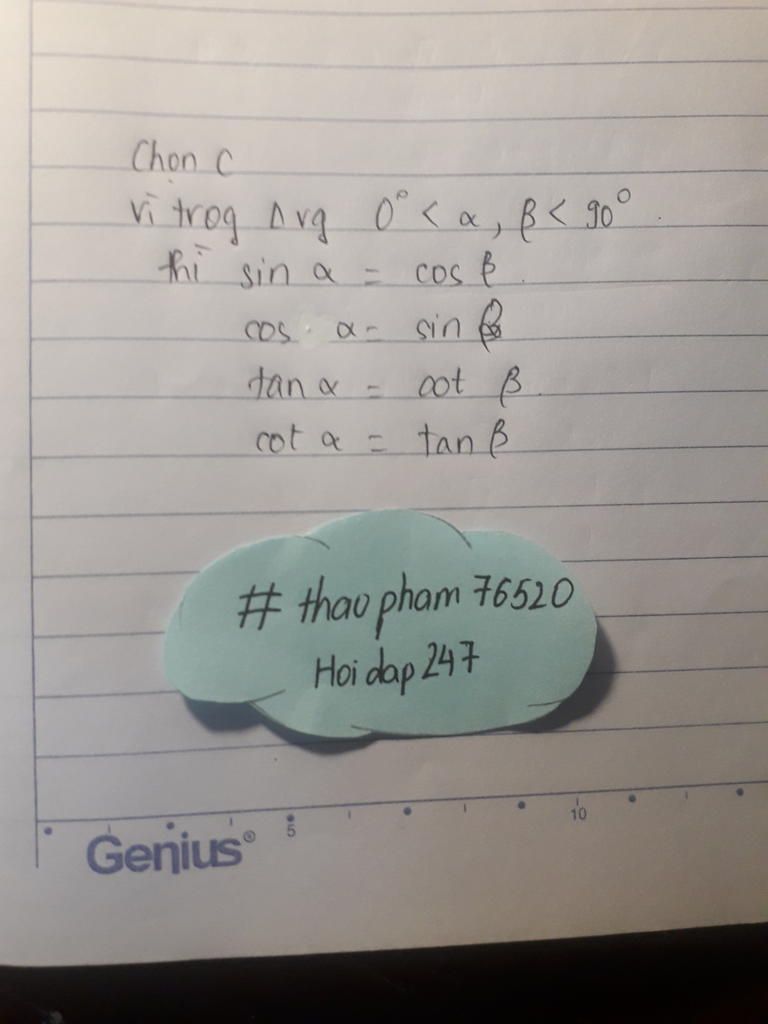 Chọn C
Vì trog Δ vg 0° < α, β < 90°.
thì sin α = cos β.
cos α = sin β
tan α = cot β.
cot α = tan β
# thao pham 76520
Hoi dap 247
5
10
Genius®